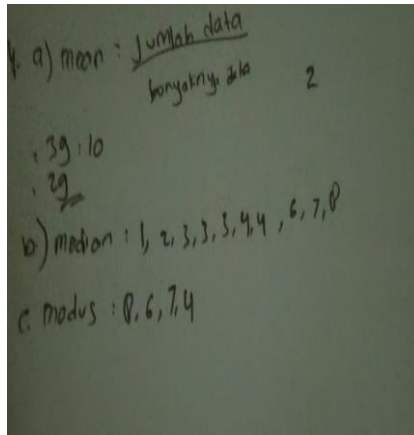 4. a) mean : jumlah data
banyaknya data
2
: 39 : 10
: 29
b) median : 1, 2, 3, 3, 3, 4, 4 , 6, 7, 8
c. modus : 8, 6, 7, 4